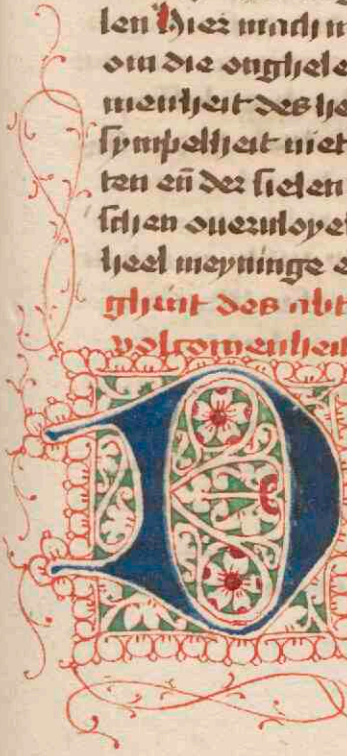 len Hier mach
om die onghele
menheit des he
sympelheit niet
ten en̄ der sielen
schen oueruloye
heel meyninge e
ghint des abt
volcomenheit
D